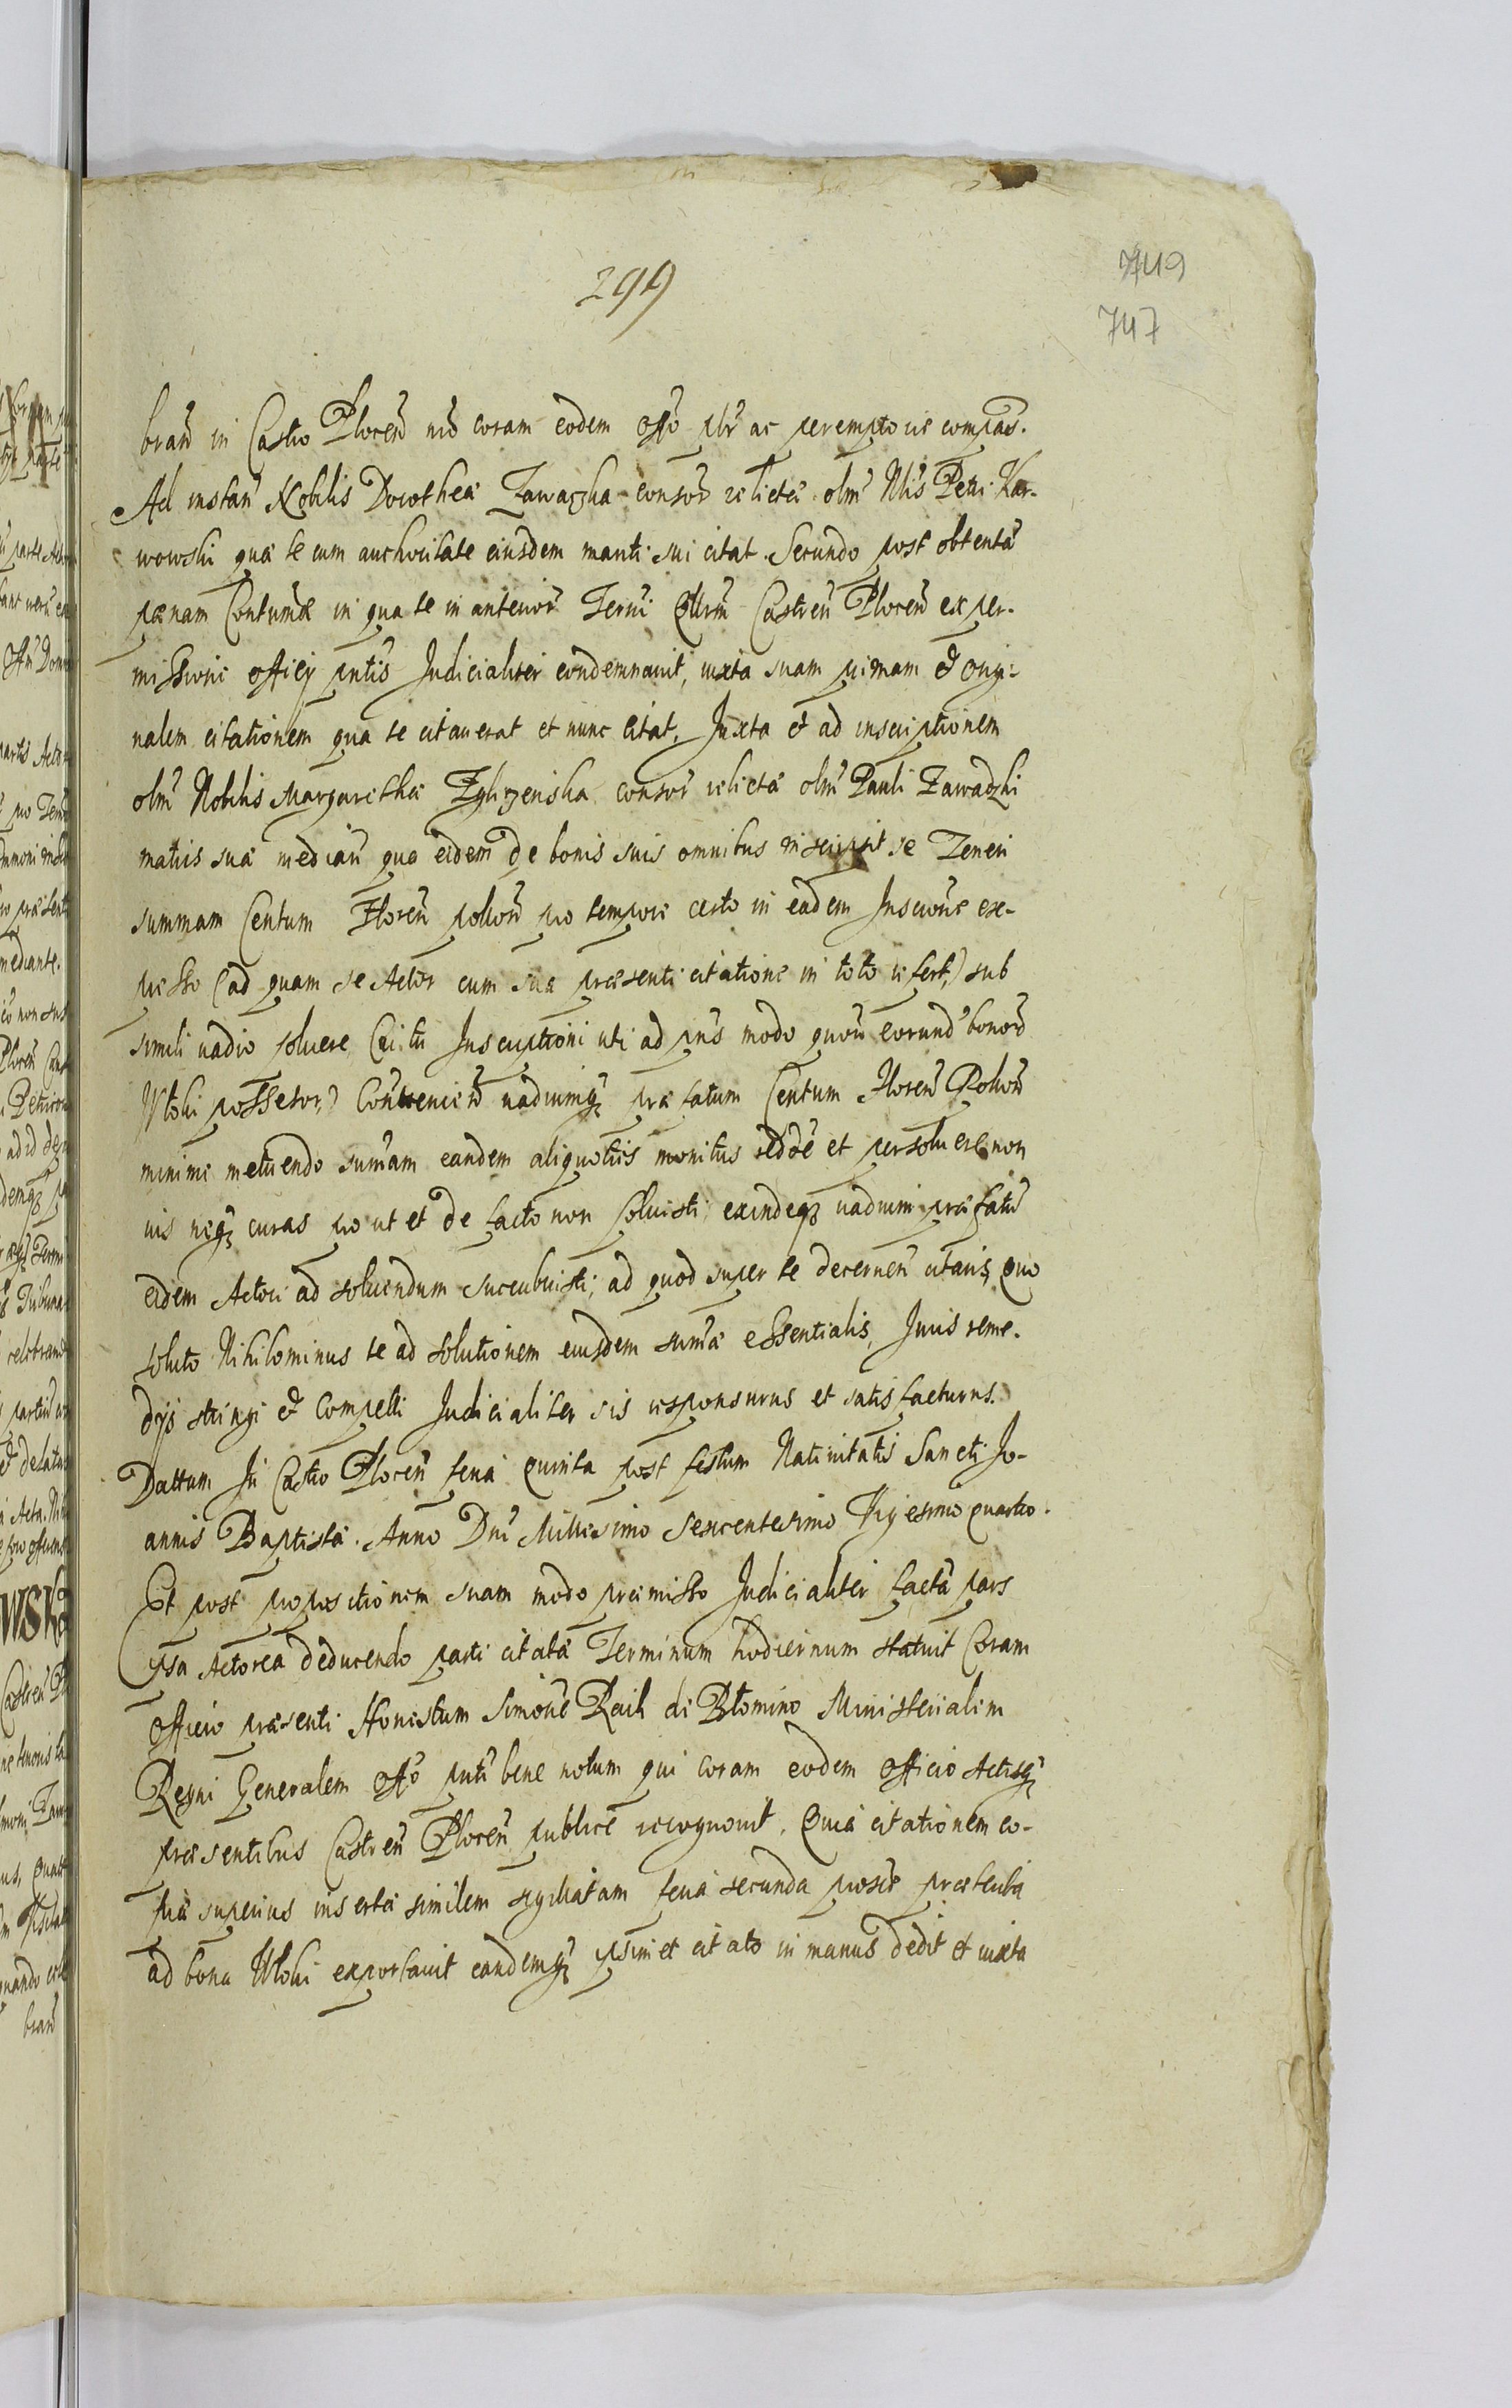 299
749
747
bran̄ in Castro Plocen̄ nrō coram eodem offō plr̄ ac peremptorie compās.
Ad instan̄ Nobilis Dorotheæ Zawaczka consor̄ relictæ olm̄ Nlīs Petri Kar-
wowski quæ te cum authoritate eiusdem mariti sui citat Secundo post obtentā
pænam Contumæ in qua te in anterior̄ Termī Qllrm̄ Castren̄ Plocen̄ ex per-
missione officij pn̄tis Judicialiter condemnauit, iuxta suam primam & origi-
nalem citationem qua te citauerat et nunc citat, Juxta & ad inscriptionem
olm̄ Nobilis Margarethæ Zglyzenska consor̄ relictæ olm̄ Pauli Zawadzki
matris suæ median̄ qua eidem de bonis suis omnibus inscripsit se Teneri
summam Centum Floren̄ polon̄ pro tempore certo in eadem Inscrone ex-
presso (ad quam se Actor cum sua præsenti citatione in toto refert,) sub
simili vadio soluere Cui tu Inscriptioni uti ad pn̄s modo quor̄u eorund' bonor̄
Wloki possesor,) Contrauen̄ vadiumq̨ præfatum Centum Floren̄ Polon̄
minime metuendo sum̄am eandem aliquoties monitus reddē et persoluere non
uis neq̨ curas pro ut et de facto non soluisti, exindeq̨ vadium præfatū
eidem Actori ad soluendum succubuisti; ad quod super te decernen̄ citaris, Quo
soluto Nihilominus te ad solutionem eiusdem sum̄æ essentialis, Juris reme-
dijs stringi & Compelli Judicialiter sis responsurus et satisfacturus.
Dattum In Castro Plocen̄ feria quinta post festum Natiuitatis Sancti Jo-
annis Baptistæ. Anno Dnī Millesimo Sexcentesimo Vigesimo quarto.
Et post propositionem suam modo præmisso Judicialiter factā pars
ipsa Actorea deducendo parti citatæ Terminum hodiernum statuit Coram
officio præsenti Honestum Simonē Reik de Blomino Ministerialem
Regni Generalem offō pn̄ti bene notum qui coram eodem officio Actisq̨
præsentibus Castren̄ Plocen̄ publicē recognouit. Quia citationem co-
piæ superius insertæ similem sigillatam feria secunda proxe præterita
ad bona Wloki exportauit eandemq̨ ipsimet citato in manus dedit et iuxta